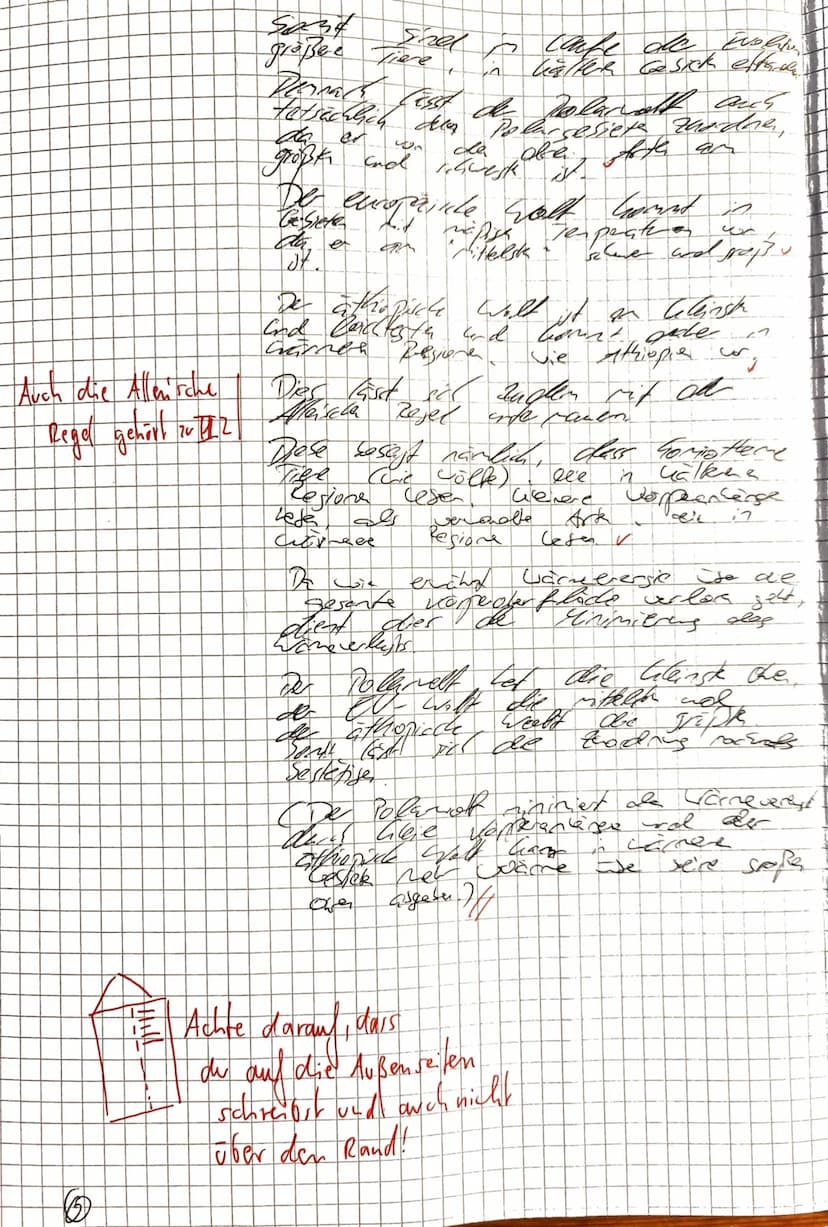 Somit sind im Laufe der Evolution
größere Tiere, in kälteren Gebieten entstanden.
Demnach lässt der Polarwolf auch
tatsächlich dem Polargebieten zuordnen,
da er von den oben Arten am
größten und schwersten ist.
Der europäische Wolf kommt in
Gebieten mit mäßigen Temperaturen vor,
da er am "mittelsten" schwer und groß
ist.
Der äthiopische Wolf ist am kleinsten
und leichtesten und kommt in
wärmeren Regionen, wie Äthiopien vor,
Auch die Allen'sche
Regel gehört zu III 2
Dies lässt sich zudem mit der
Allenschen Regel
Diese besagt nämlich, dass homoiotherme
Tiere (wie Wölfe), die in kälteren
Regionen leben, kleinere Körperanhänge
haben, als verwandte Arten, die in
wärmeren Regionen leben
Da wie erwähnt Wärmeenergie über die
gesamte Körperoberfläche verloren geht,
dient dies der Minimierung des
Wärmeverlusts.
Der Polarwolf hat die kleinsten Ohren,
der EU-Wolf die mittleren und
der äthiopische Wolf die größten.
Somit lässt sich die Zuordnung nochmals
bestätigen
(Der Polarwolf minimiert den Wärmeverlust
durch kleine Körperanhänge und der
äthiopische Wolf kann in wärmeren
Gebieten mehr Wärme über seine großen
Ohren abgeben.)
Achte darauf, dass
du auf die Außenseiten
schreibst und auch nicht
über den Rand!
5